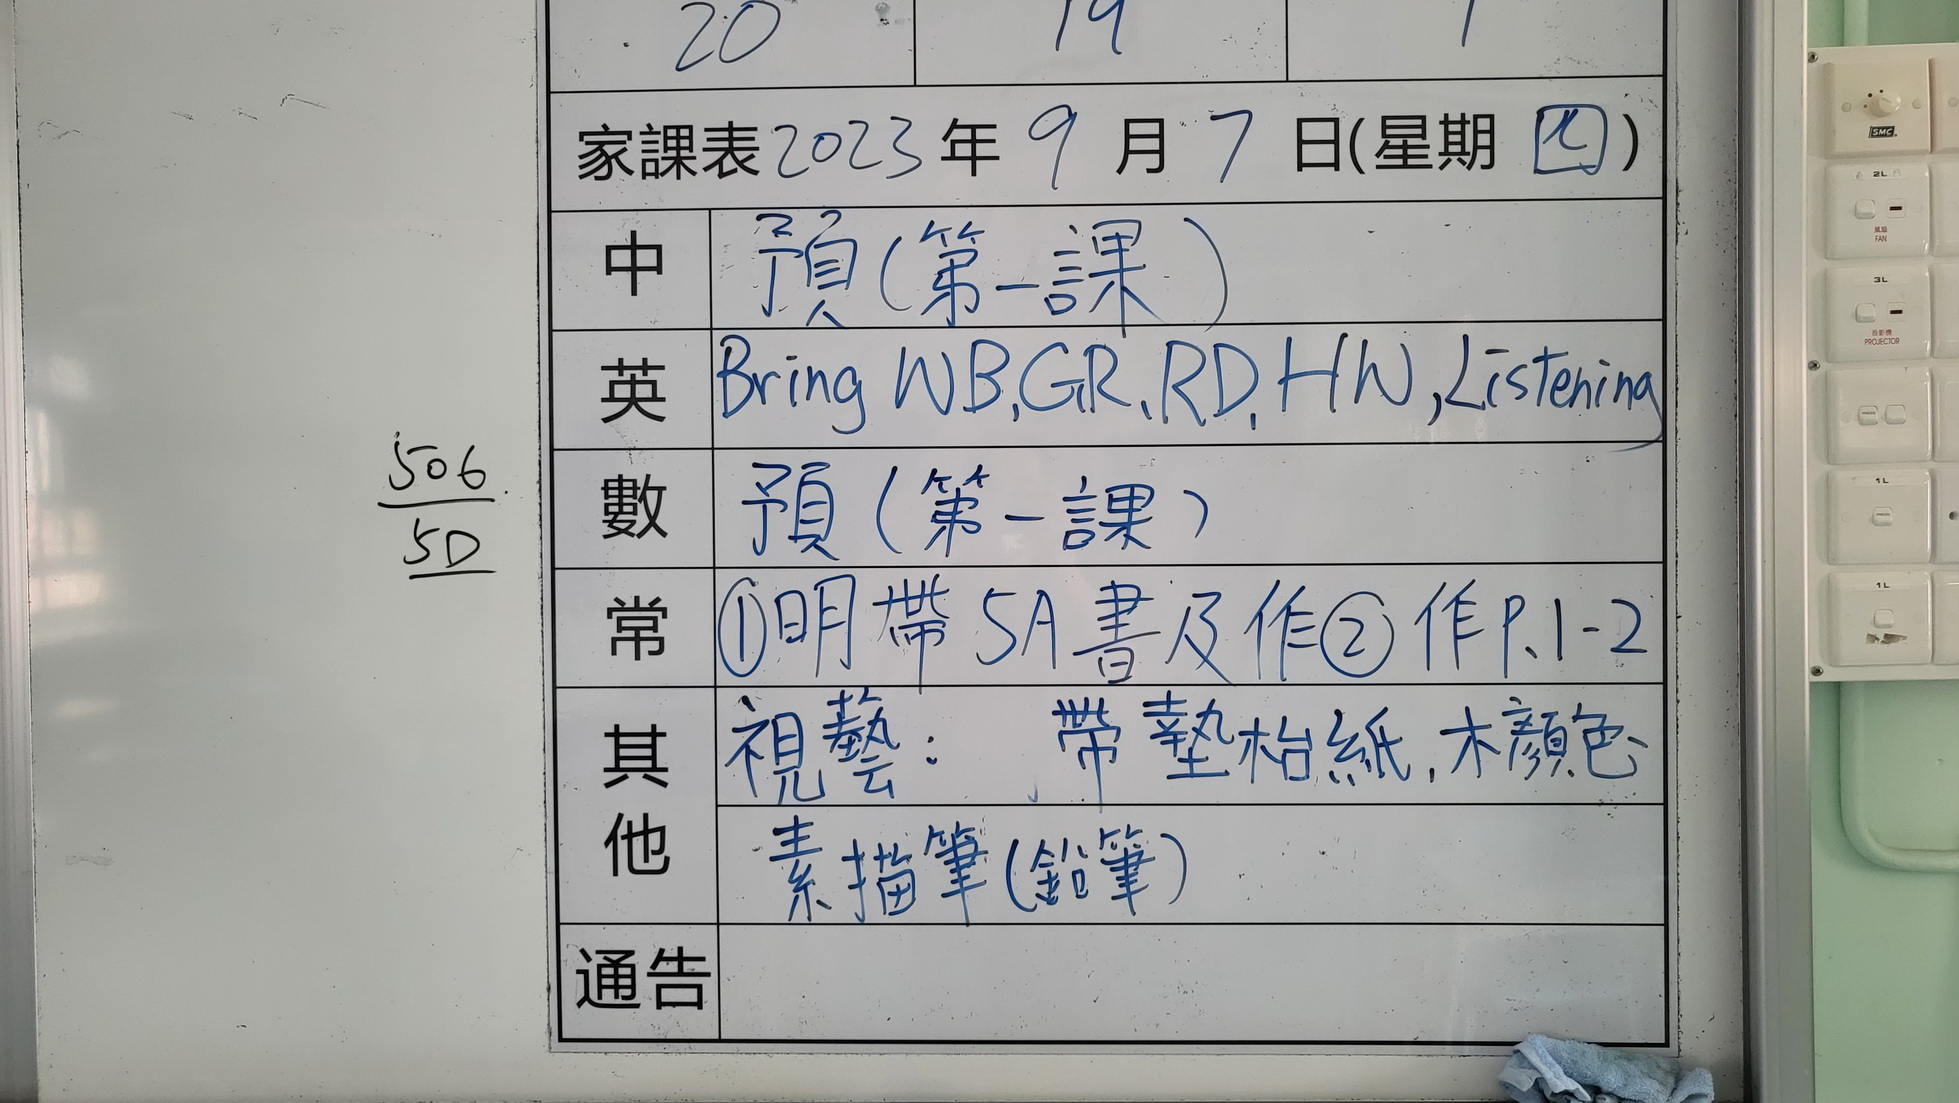 20 19 1
家課表2023年9月7日(星期四)
中 預(第一課)
英 Bring WB, GR, RD, HW, Listening
數 預(第一課)
常 ①明帶5A書及作②作P.1-2
其他 視藝: 帶墊枱紙,木顏色
素描筆(鉛筆)
通告
506
5D
SMC
2L
風扇
FAN
3L
投影機
PROJECTOR
1L
1L